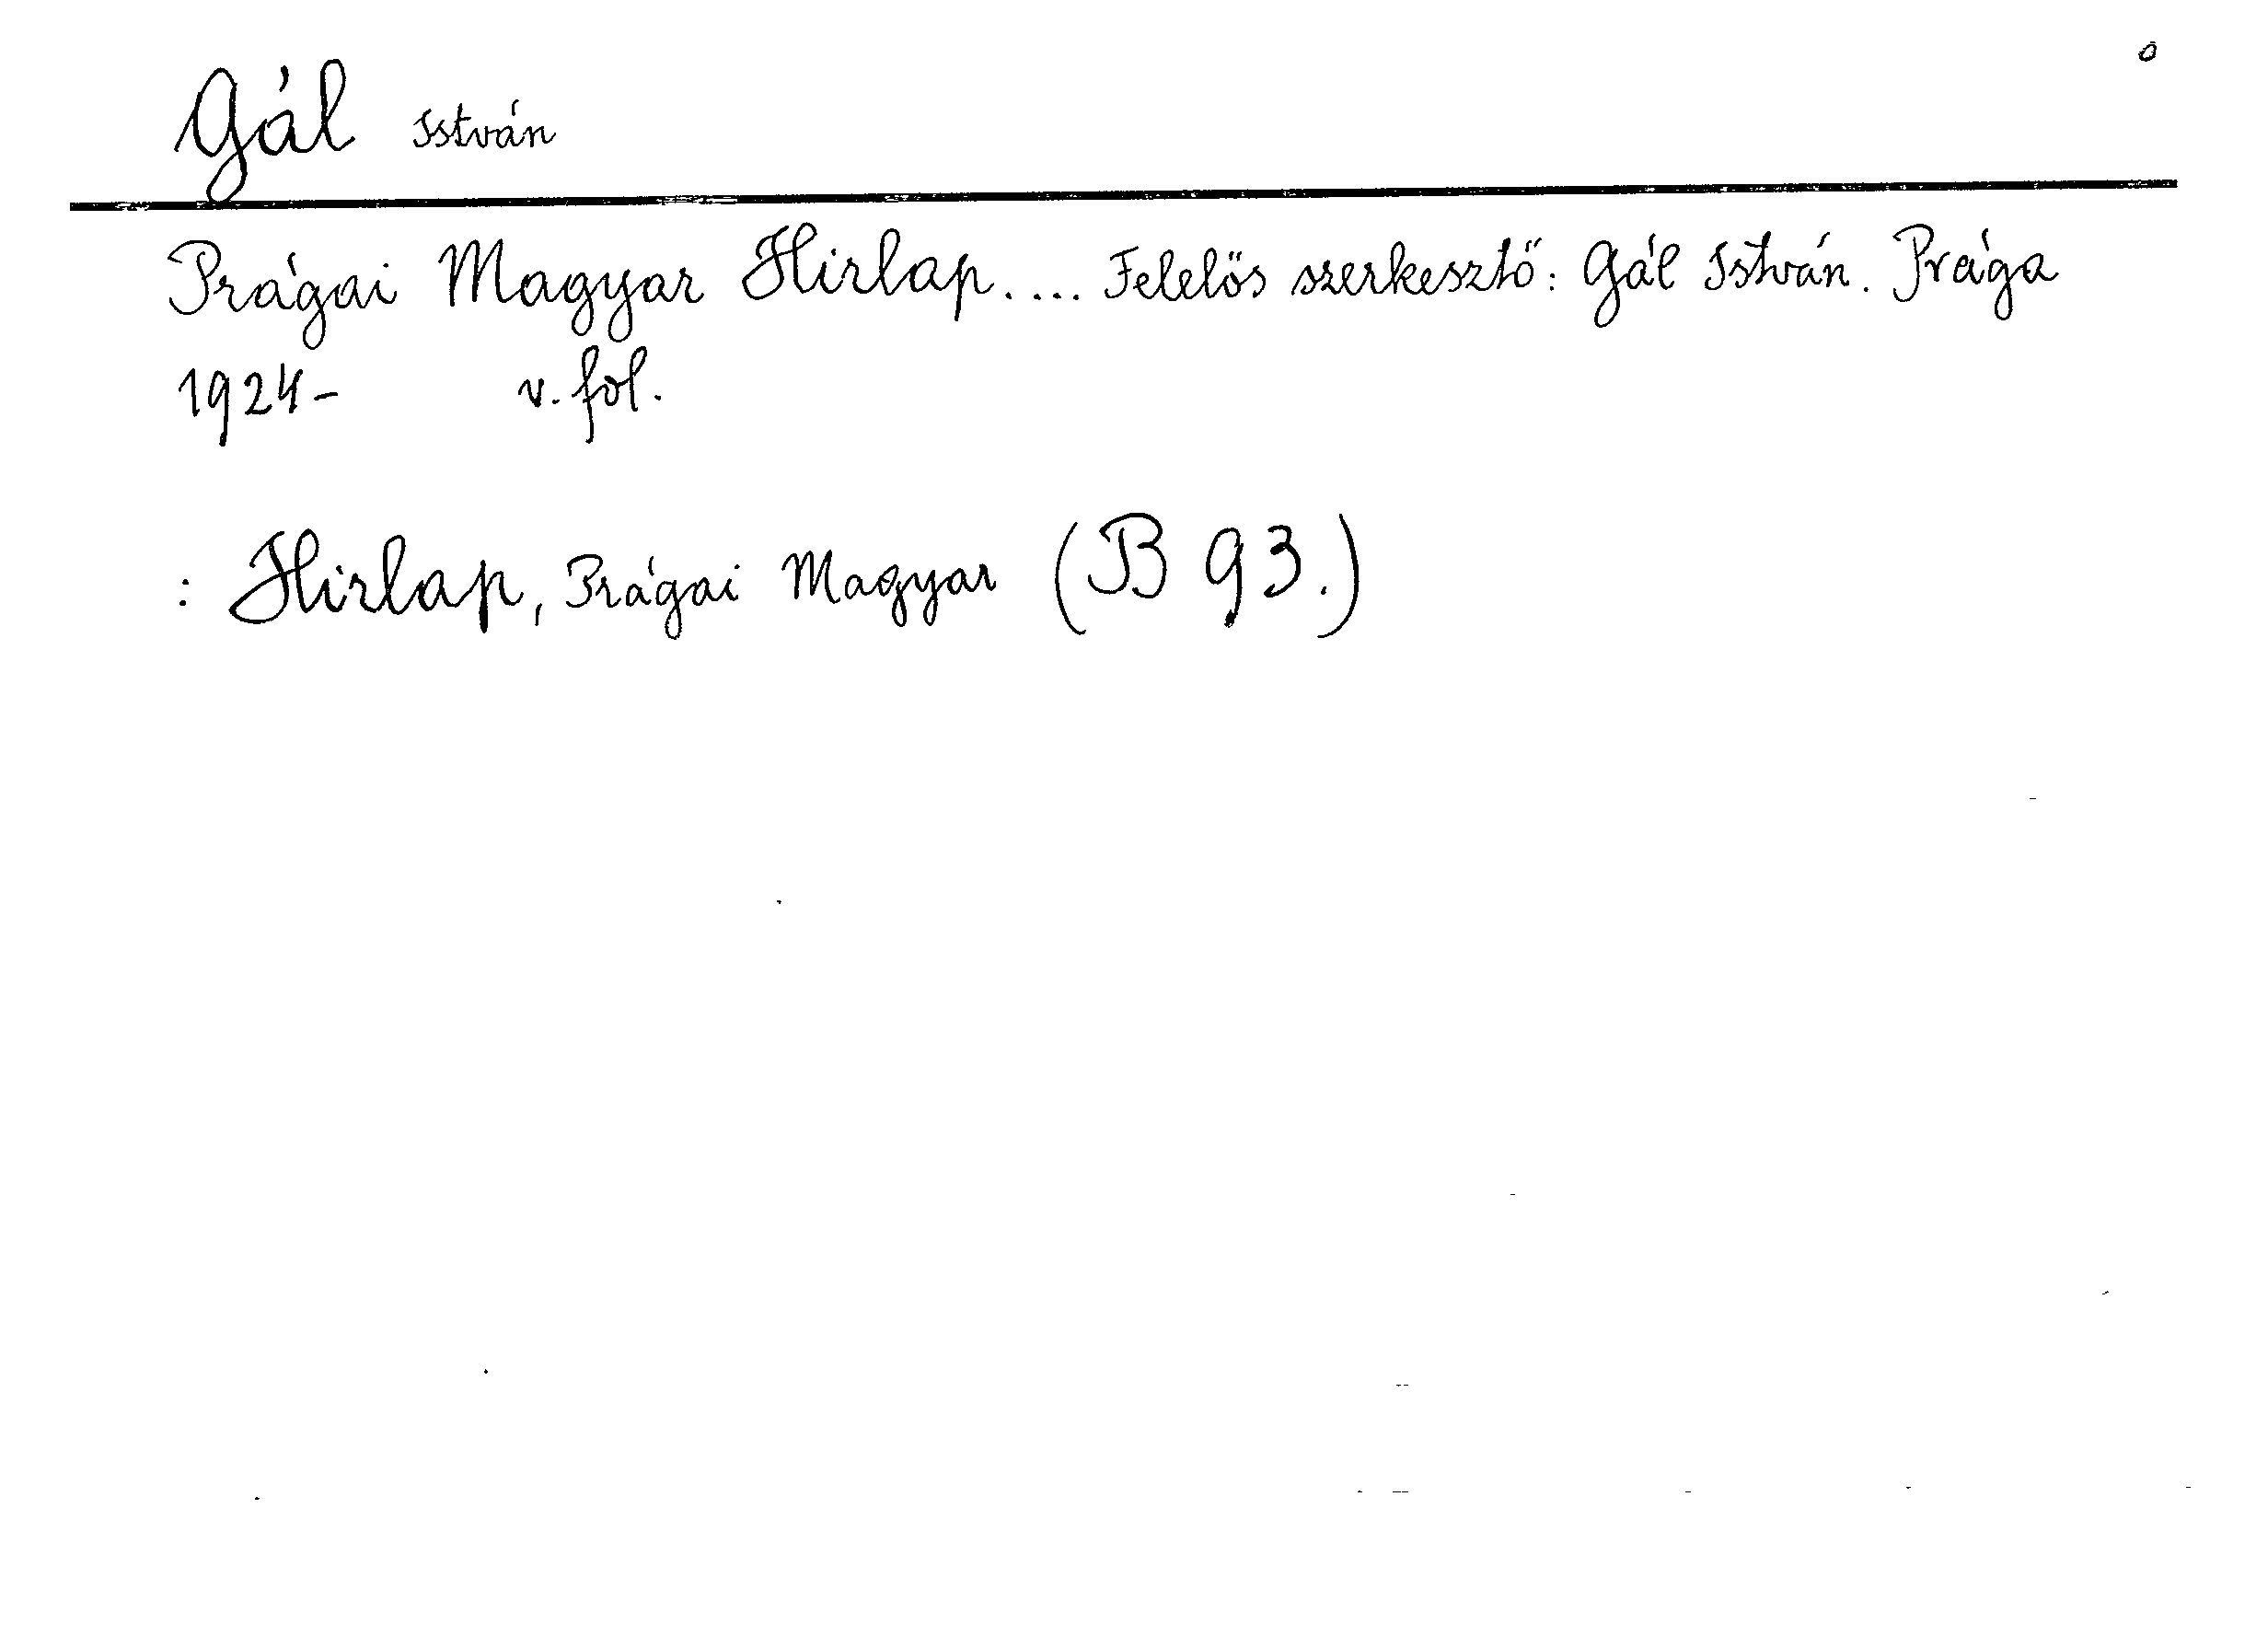 0
Gál István
Prágai Magyar Hirlap.... Felelős szerkesztő: Gál István. Prága
1924- v. fol.
: Hirlap, Prágai Magyar (B 93.)